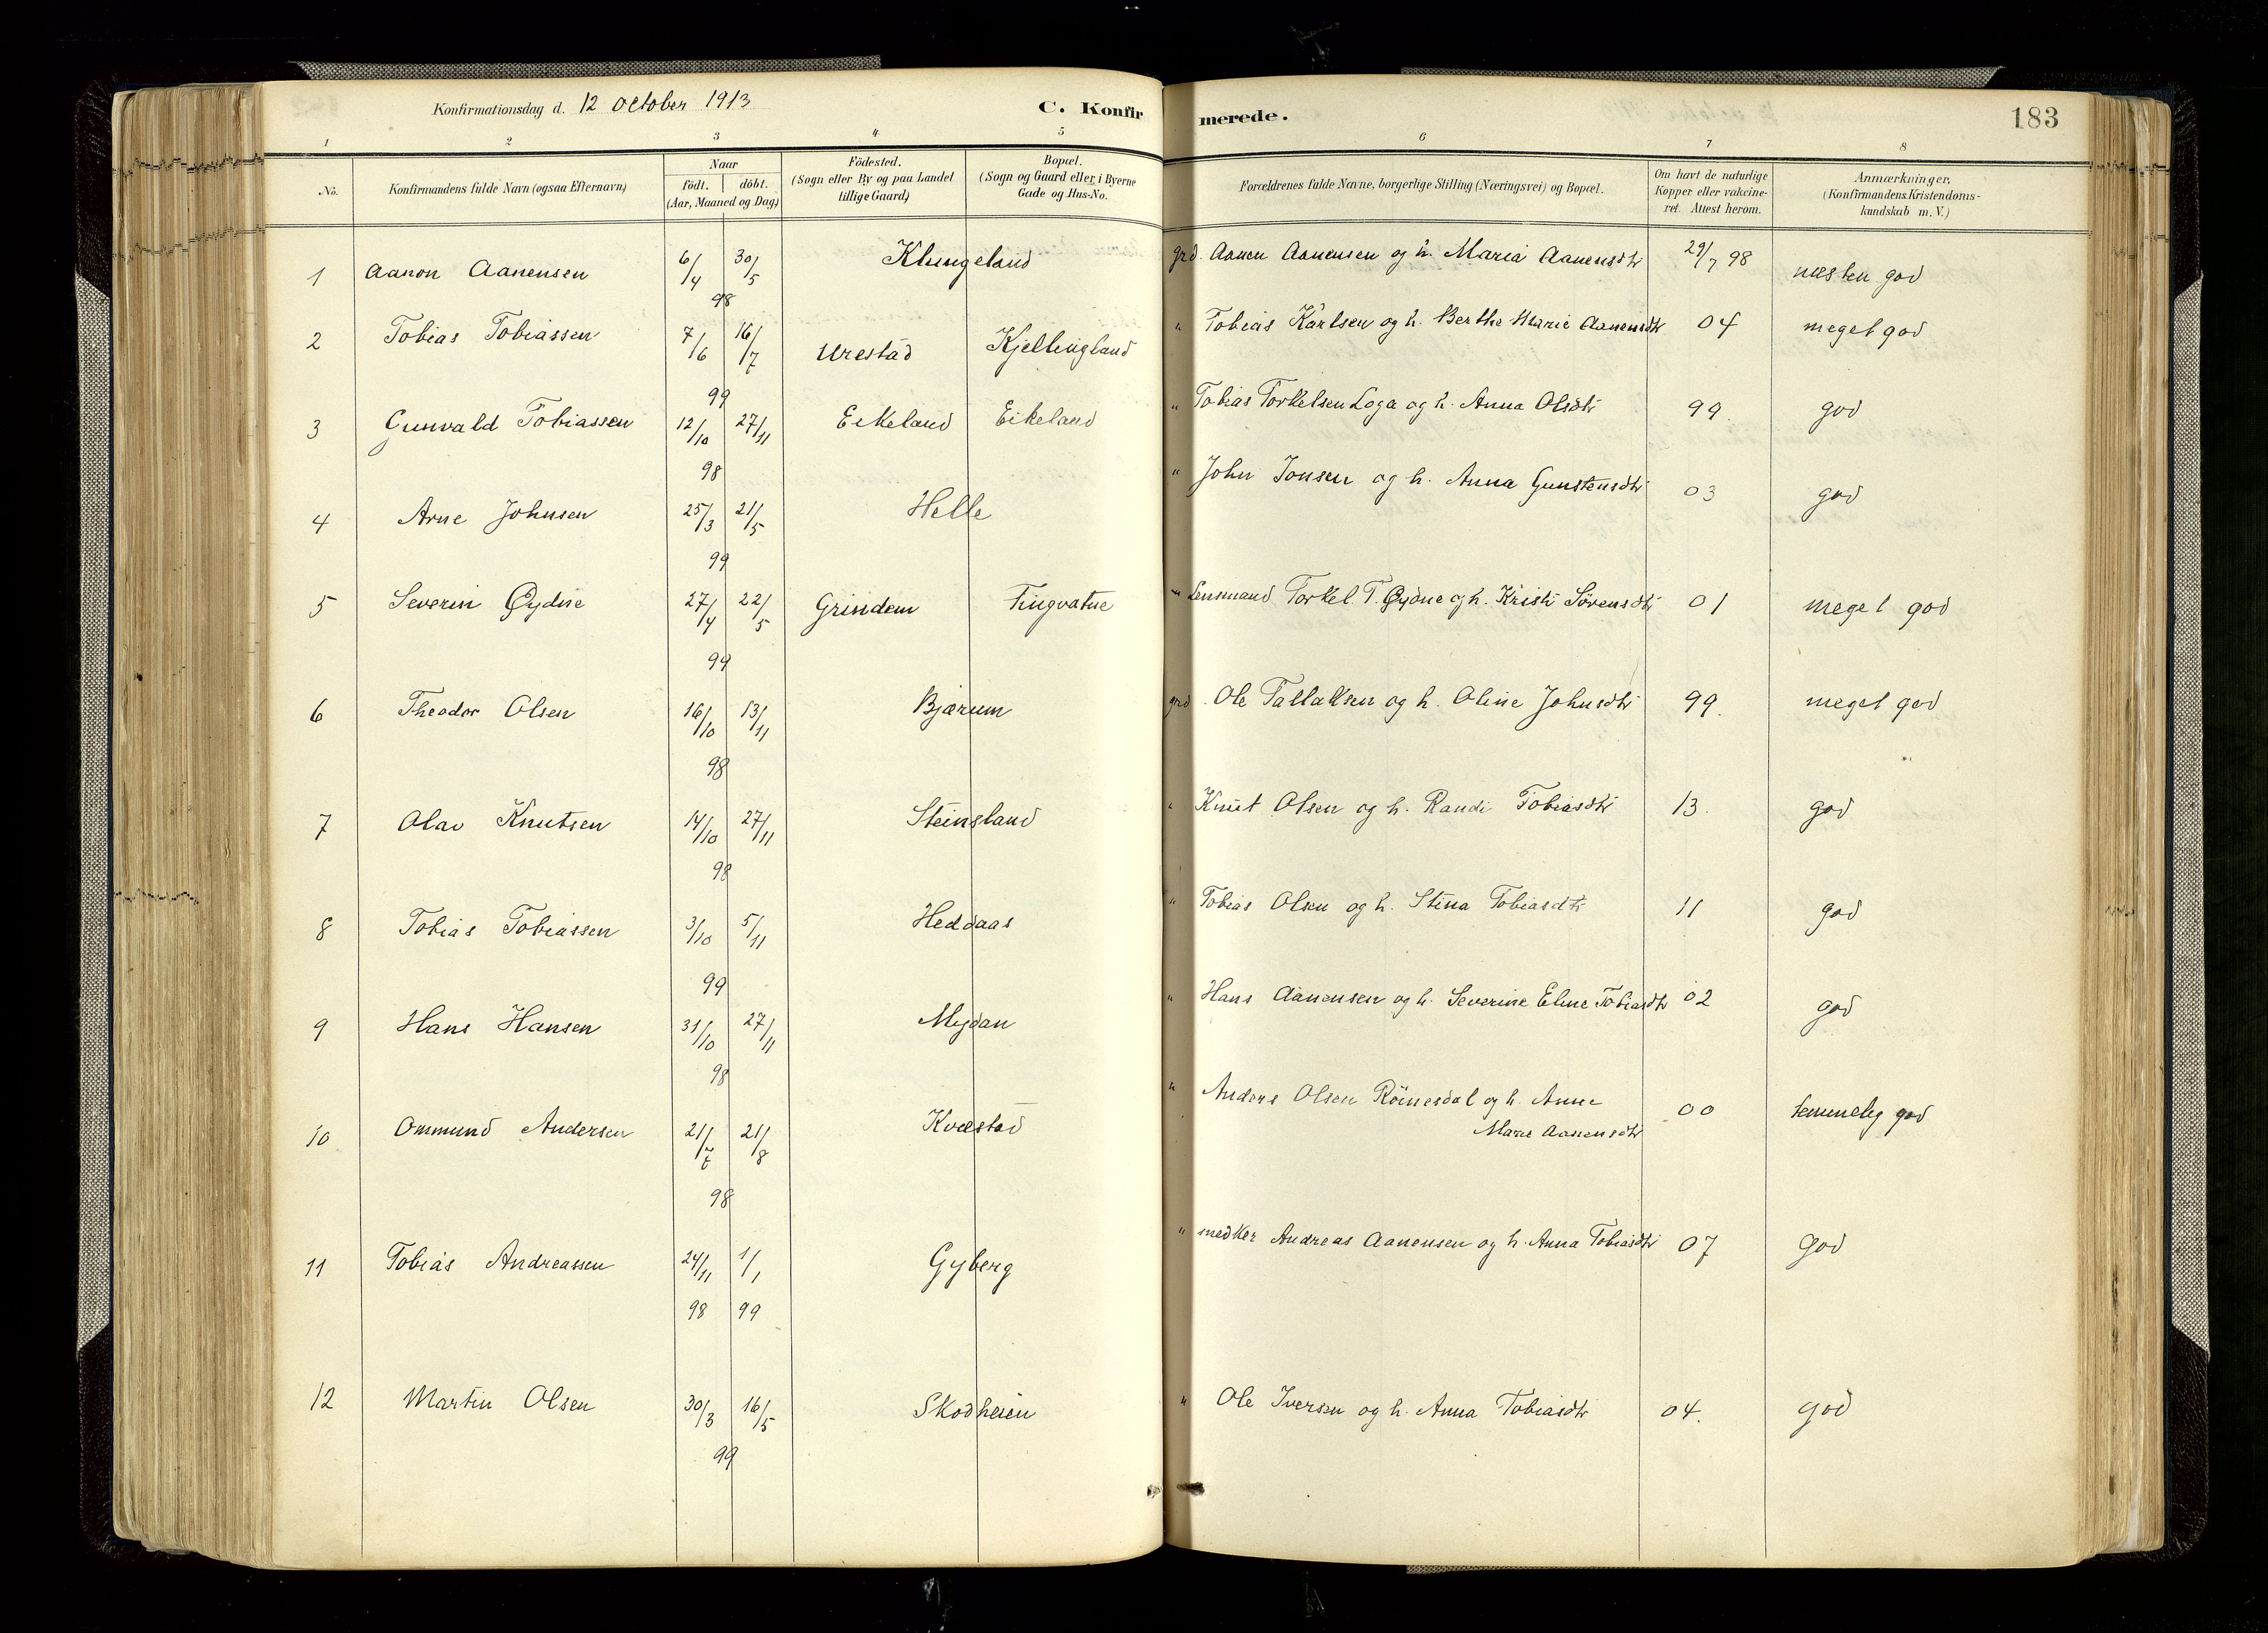 Konfirmationsdag d. 12 october 1913
C. Konfirmerede.
183
1 2 3 4 5 6 7 8
No.
Konfirmandens fulde Navn (ogsaa Efternavn)
Naar
födt. döbt.
(Aar, Maaned og Dag)
Födested.
(Sogn eller By og paa Landet
tillige Gaard)
Bopæl.
(Sogn og Gaard eller i Byerne
Gade og Hus-No.
Forældrenes fulde Navne, borgerlige Stilling (Næringsvei) og Bopæl.
Om havt de naturlige
Kopper eller vakcine-
ret. Attest herom.
Anmærkninger,
(Konfirmandens Kristendoms-
kundskab m. V.)
1 Aanon Aanensen 6/4 30/5 98 Klungeland grd. Aanen Aanensen og h. Maria Aanensdtr 29/7 98 næsten god
2 Tobias Tobiassen 7/6 16/7 99 Urestad Kjellingland " Tobias Karlsen og h. Berthe Marie Aanensdtr 04 meget god
3 Gunvald Tobiassen 12/10 27/11 98 Eikeland Eikeland " Tobias Torkelsen Loga og h. Anna Olsdtr 99. god
4 Arne Johnsen 25/3 21/5 99 Helle " John Jonsen og h. Anna Gunstensdtr 03 god
5 Severin Øydne 27/4 22/5 99 Grindem Tingvatne " Lensmand Torkel T. Øydne og h. Kristi Sörensdtr 01 meget god
6 Theodor Olsen 16/10 13/11 98 Bjærum grd. Ole Tallaksen og h. Oline Johnsdtr 99. meget god
7 Olav Knutsen 14/10 27/11 98 Steinsland " Knut Olsen og h. Randi Tobiasdtr 13. god
8 Tobias Tobiassen 3/10 5/11 99 Heddaas " Tobias Olsen og h. Stina Tobiasdtr 11 god
9 Hans Hansen 31/10 27/11 98 Mydan " Hans Aanensen og h. Severine Eline Tobiasdtr 02 god
10 Ommund Andersen 21/7 21/8 98 Kvæstad " Anders Olsen Röinesdal og h. Anne
Marie Aanensdtr 00 temmelig god
11 Tobias Andreassen 24/11 98 1/1 99 Gyberg " Andreas Aanensen og h. Anna Tobiasdtr 07 god
12 Martin Olsen 30/3 16/5 99 Skodheien " Ole Iversen og h. Anna Tobiasdtr 04. god